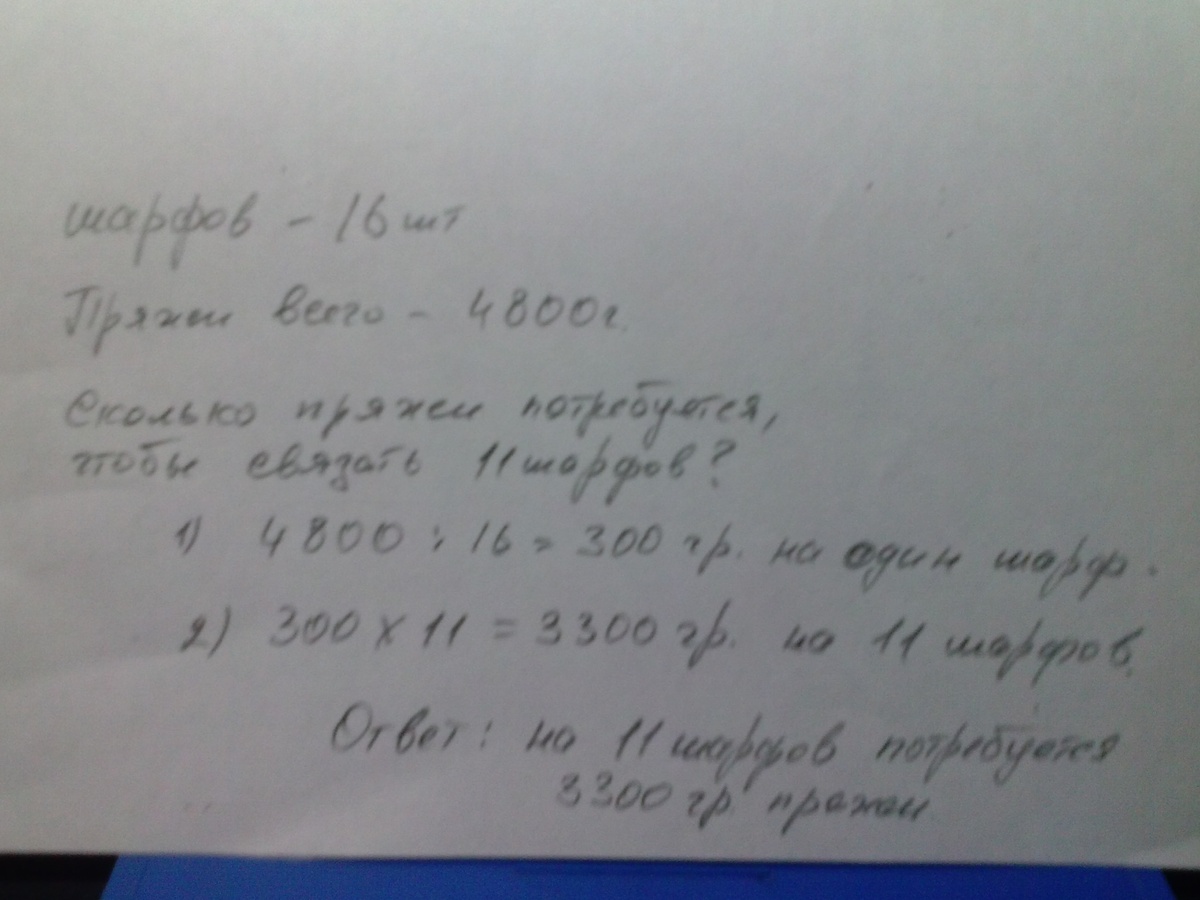 шарфов - 16 шт
Пряжи всего - 4800г.
Сколько пряжи потребуется,
чтобы связать 11 шарфов?
1) 4800 : 16 = 300 гр. на один шарф.
2) 300 х 11 = 3300 гр. на 11 шарфов.
Ответ: на 11 шарфов потребуется
3300 гр. пряжи